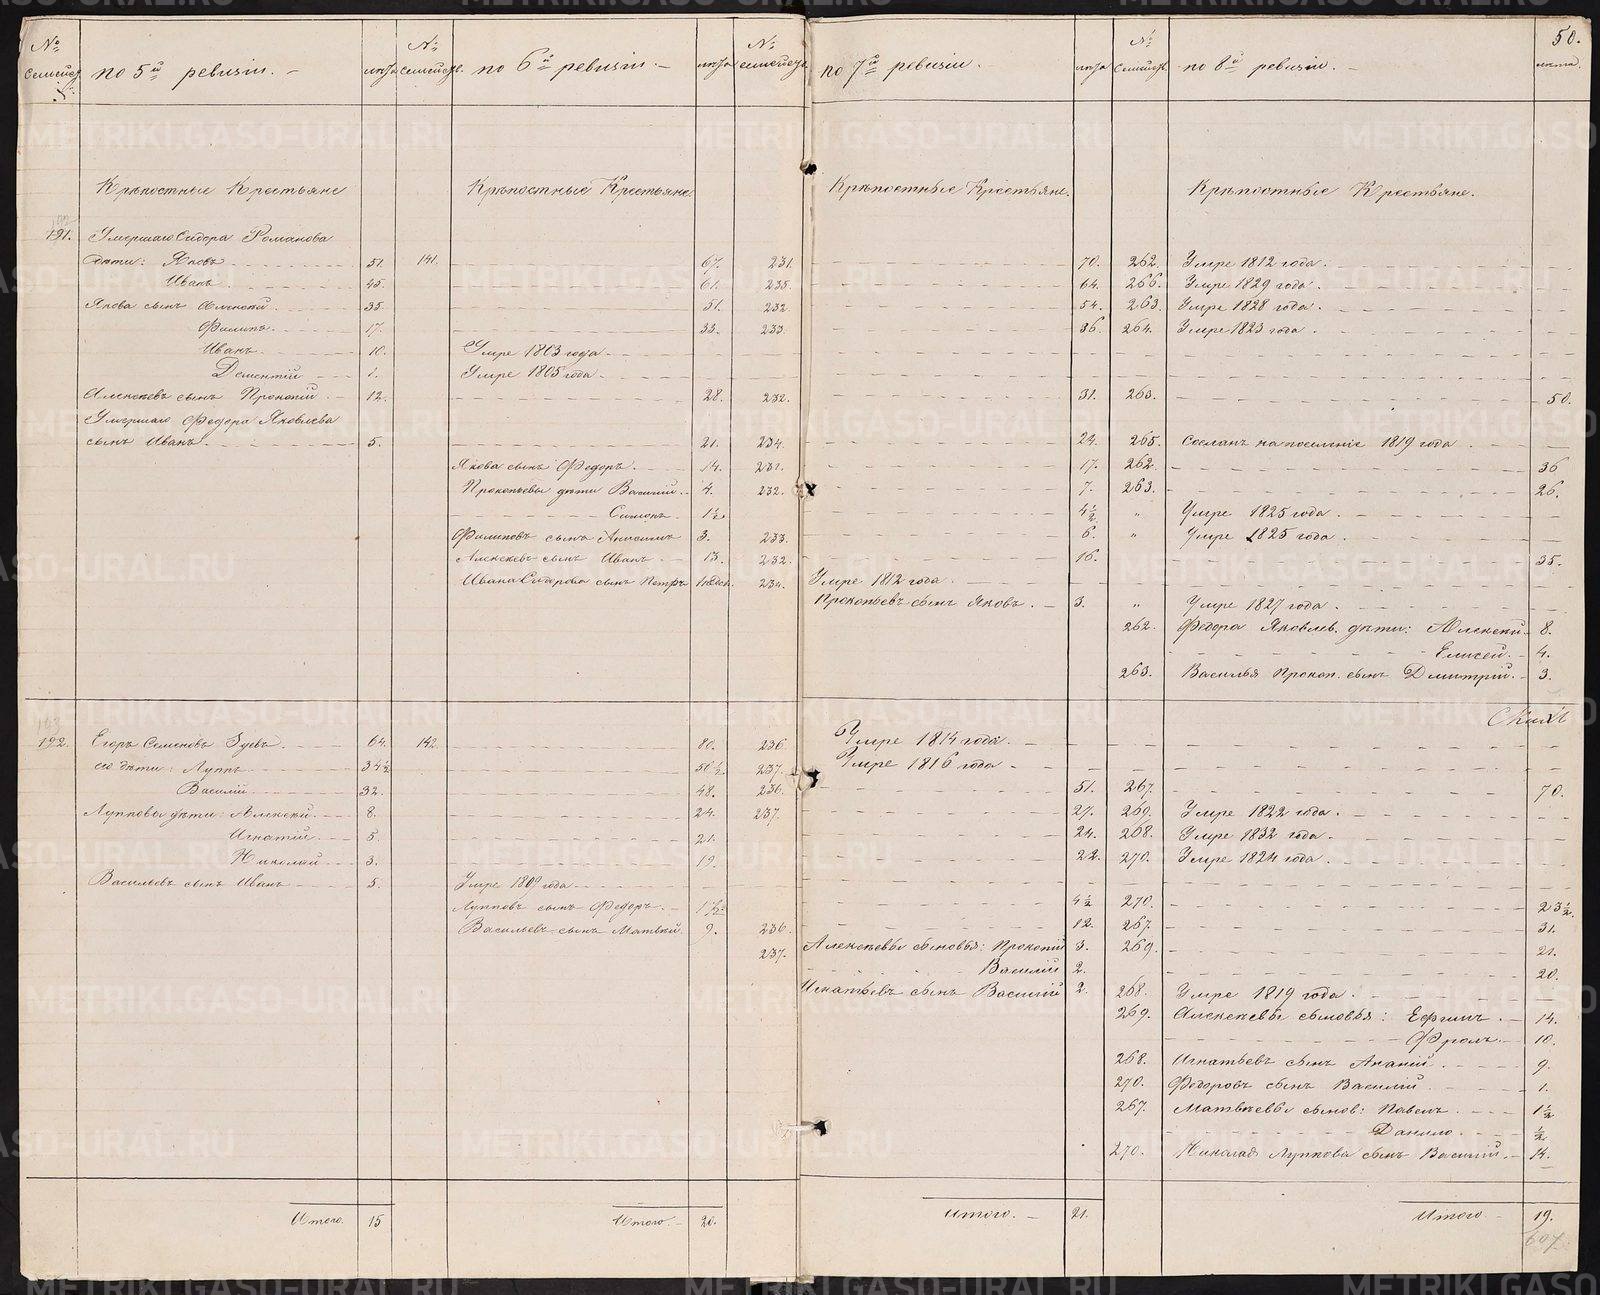 50.
№ семейст. по 5й ревизiи. лѣта № семейств. по 6й ревизiи. лѣта № семейств. по 7й ревизiи. лѣта № семейств. по 8й ревизiи. лѣта.
Крѣпостные Крестьяне Крѣпостные Крестьяне. Крѣпостные Крестьяне. Крѣпостные Крестьяне.
191. Умершаго Сидора Романова
дѣти: Яковъ 51. 141. 67. 231. 70. 262. Умре 1812 года.
Иванъ 45. 61. 235. 64. 266. Умре 1829 года.
Якова сынъ Алексѣй 35. 51. 232. 54. 263. Умре 1828 года.
Филипъ. 17. 33. 233. 36. 264. Умре 1823 года.
Иванъ. 10. Умре 1803 года.
Дементiй 1. Умре 1805 года.
Алексѣевъ сынъ Прокопiй 12. 28. 232. 31. 263. 50.
Умершаго Федора Яковлева
сынъ Иванъ. 5. 21. 234. 24. 265. Сосланъ на поселенiе 1819 года
Якова сынъ Федоръ. 14. 231. 17. 262. 36
Прокопьевы дѣти Василiй. 4. 232. 7. 263. 26.
Симонъ. 1½. 4½ " Умре 1825 года.
Филиповъ сынъ Анисимъ 3. 233. 6. " Умре 1825 года.
Алексѣевъ сынъ Иванъ 13. 232. 16. 35.
Ивана Сидорова сынъ Петръ 234. Умре 1812 года.
Прокопьевъ сынъ Яковъ. 3. " Умре 1827 года.
262. Федора Яковлев. дѣти: Алексѣй 8.
Елисей. 4.
263. Василья Прокоп. сынъ Дмитрiй. 3.
192. Егоръ Семеновъ Зуевъ. 64. 142. 80. 236 Умре 1814 года.
его дѣти: Луппъ 34½ 50½. 237. Умре 1816 года
Василiй 32. 48. 236. 51. 267. 70.
Лупповы дѣти: Алексѣй. 8. 24. 237. 27. 269. Умре 1822 года.
Игнатiй. 5. 21. 24. 268. Умре 1832 года.
Николай 3. 19. 22. 270. Умре 1824 года.
Васильевъ сынъ Иванъ 5. Умре 1809 года
Лупповъ сынъ Федоръ. 1½ 4½ 270. 23½.
Васильевъ сынъ Матвѣй. 9. 236. 12. 267. 31.
237. Алексѣевы сыновья: Прокопiй 3. 269. 21.
Василiй 2. 20.
Игнатьевъ сынъ Василiй 2. 268. Умре 1819 года.
269. Алексѣевы сыновья: Ефимъ. 14.
Фролъ. 10.
268. Игнатьевъ сынъ Ананiй. 9.
270. Федоровъ сынъ Василiй 1.
267. Матвѣевы сынов: Павелъ. 1½
Данило. ½
270. Николая Луппова сынъ Василiй. 14.
Итого. 15 Итого. 20. Итого. 21. Итого 19.
607
METRIKI.GASO-URAL.RU